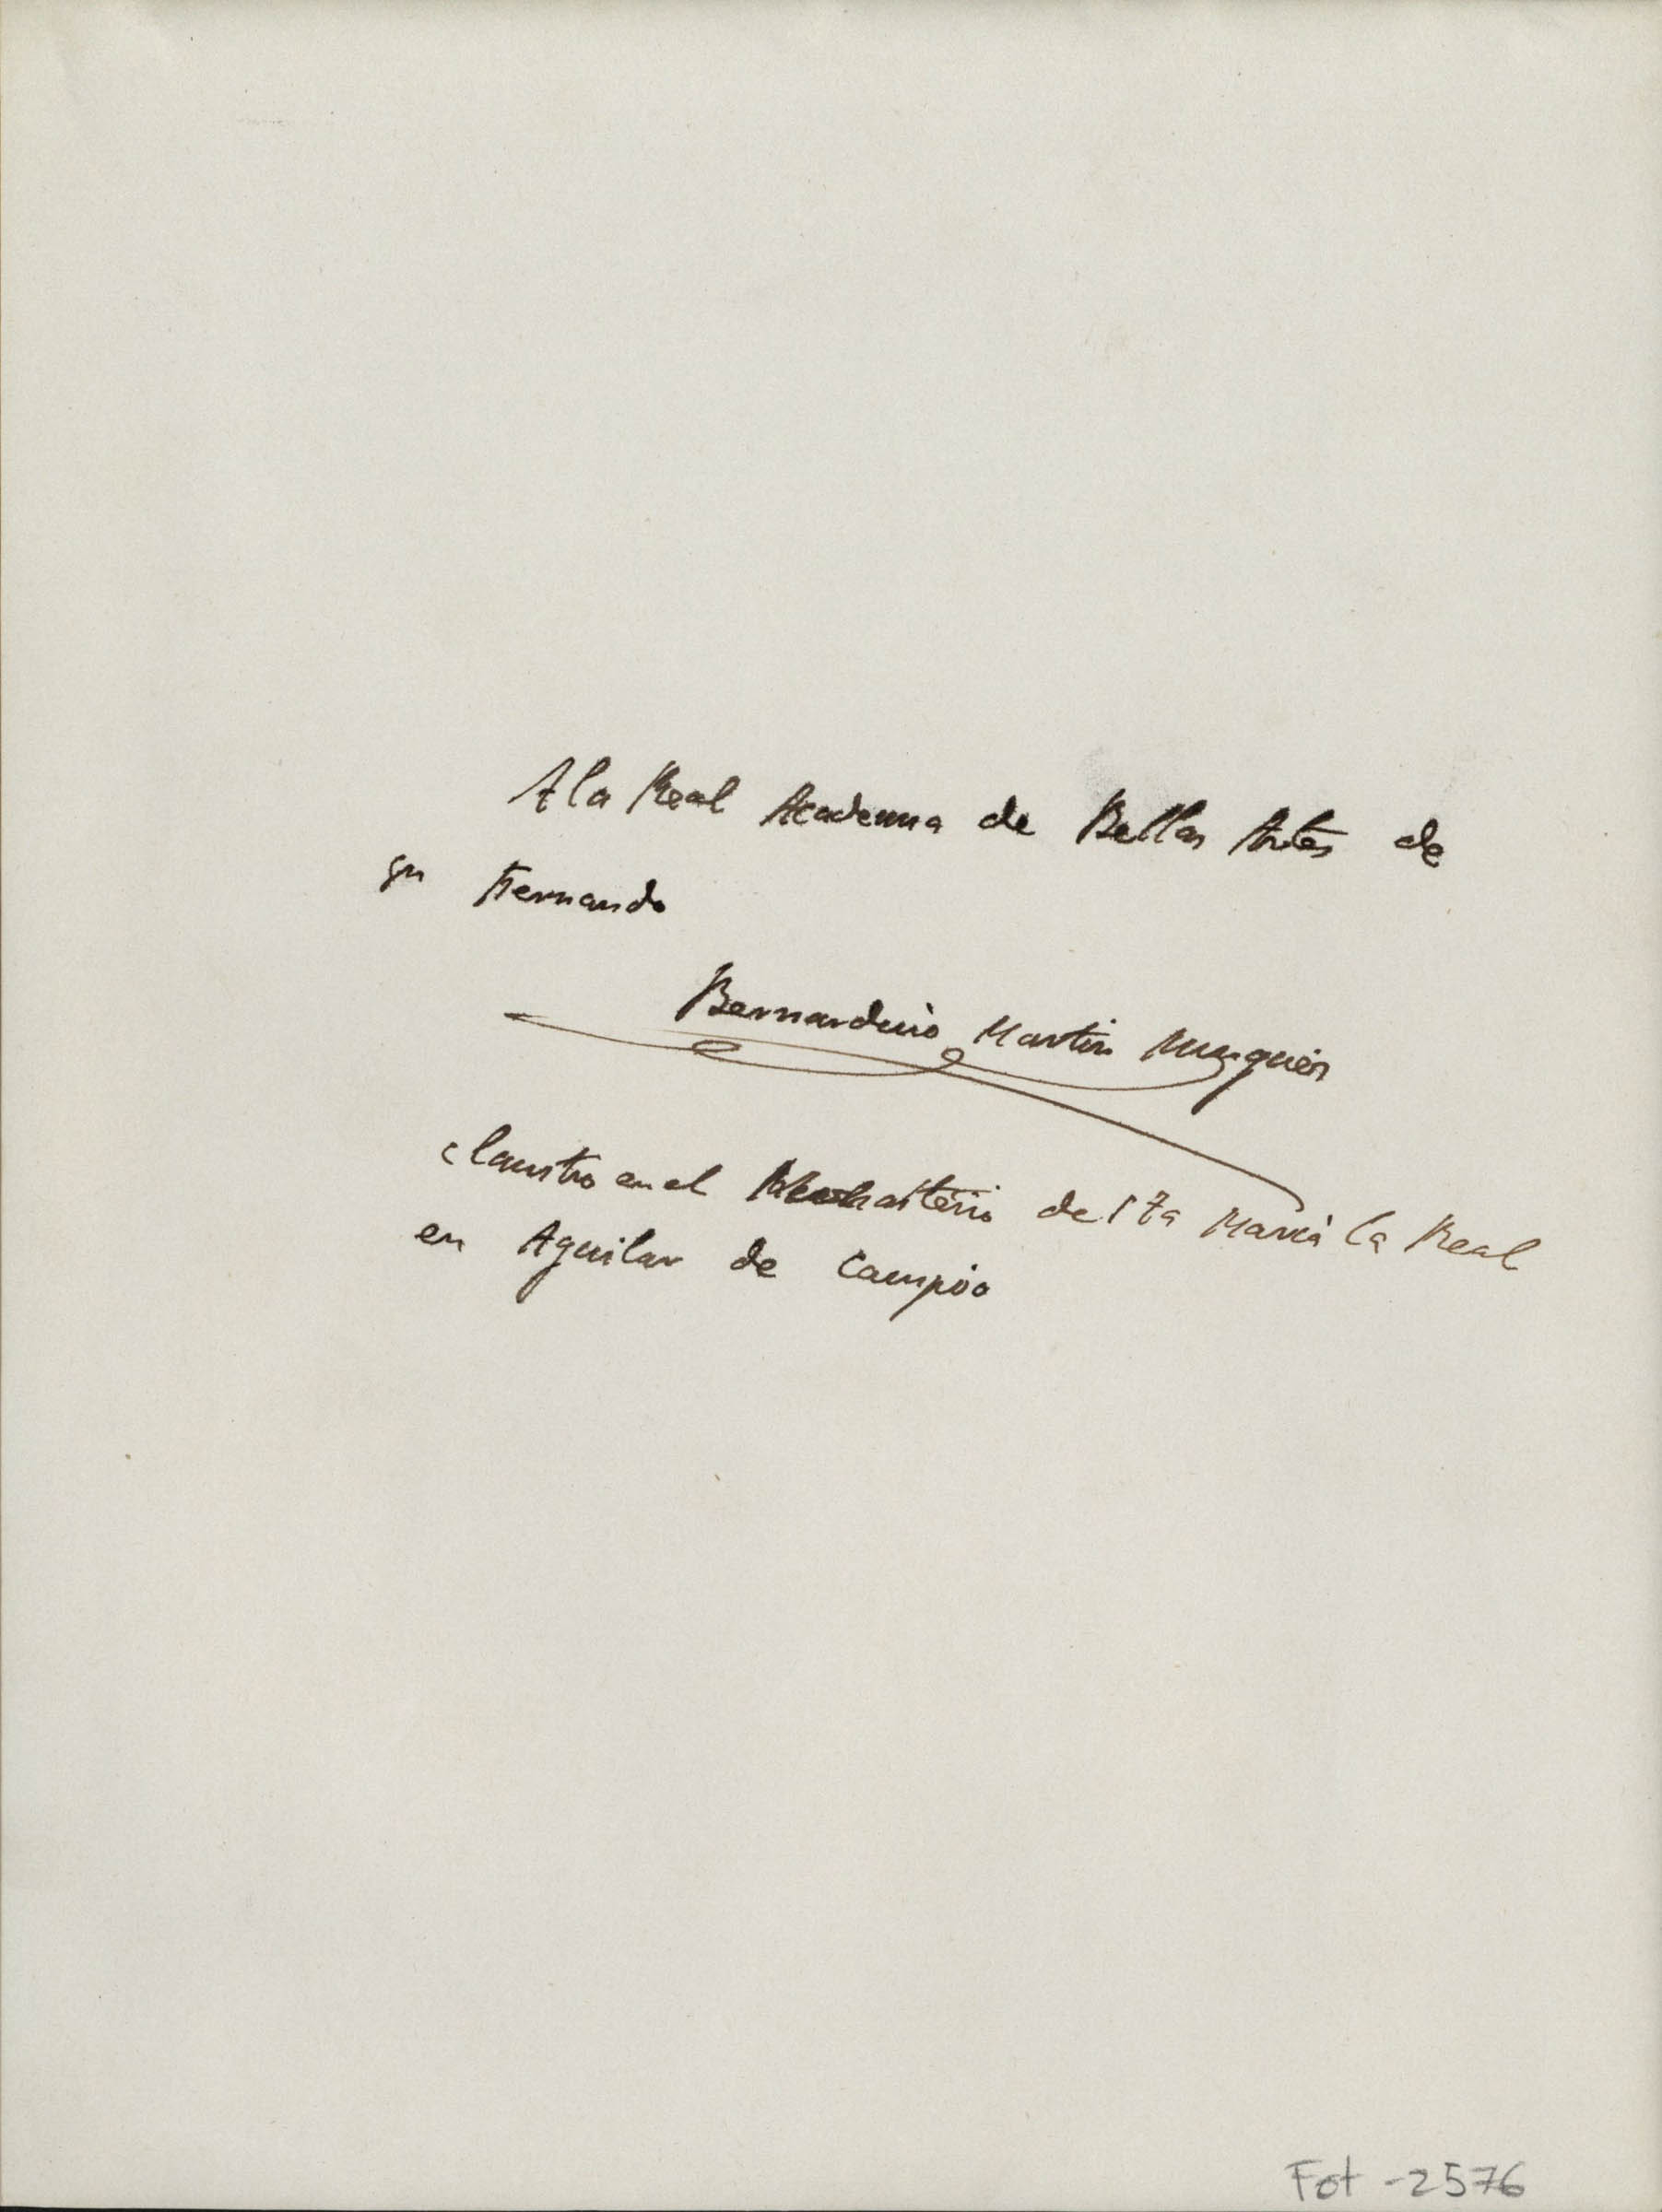 A la Real Academia de Bellas Artes de
Sn Fernando
Bernardino Martin Minguez
claustro en el Monasterio de Sta Maria la Real
en Aguilar de Campóo
Fot - 2576